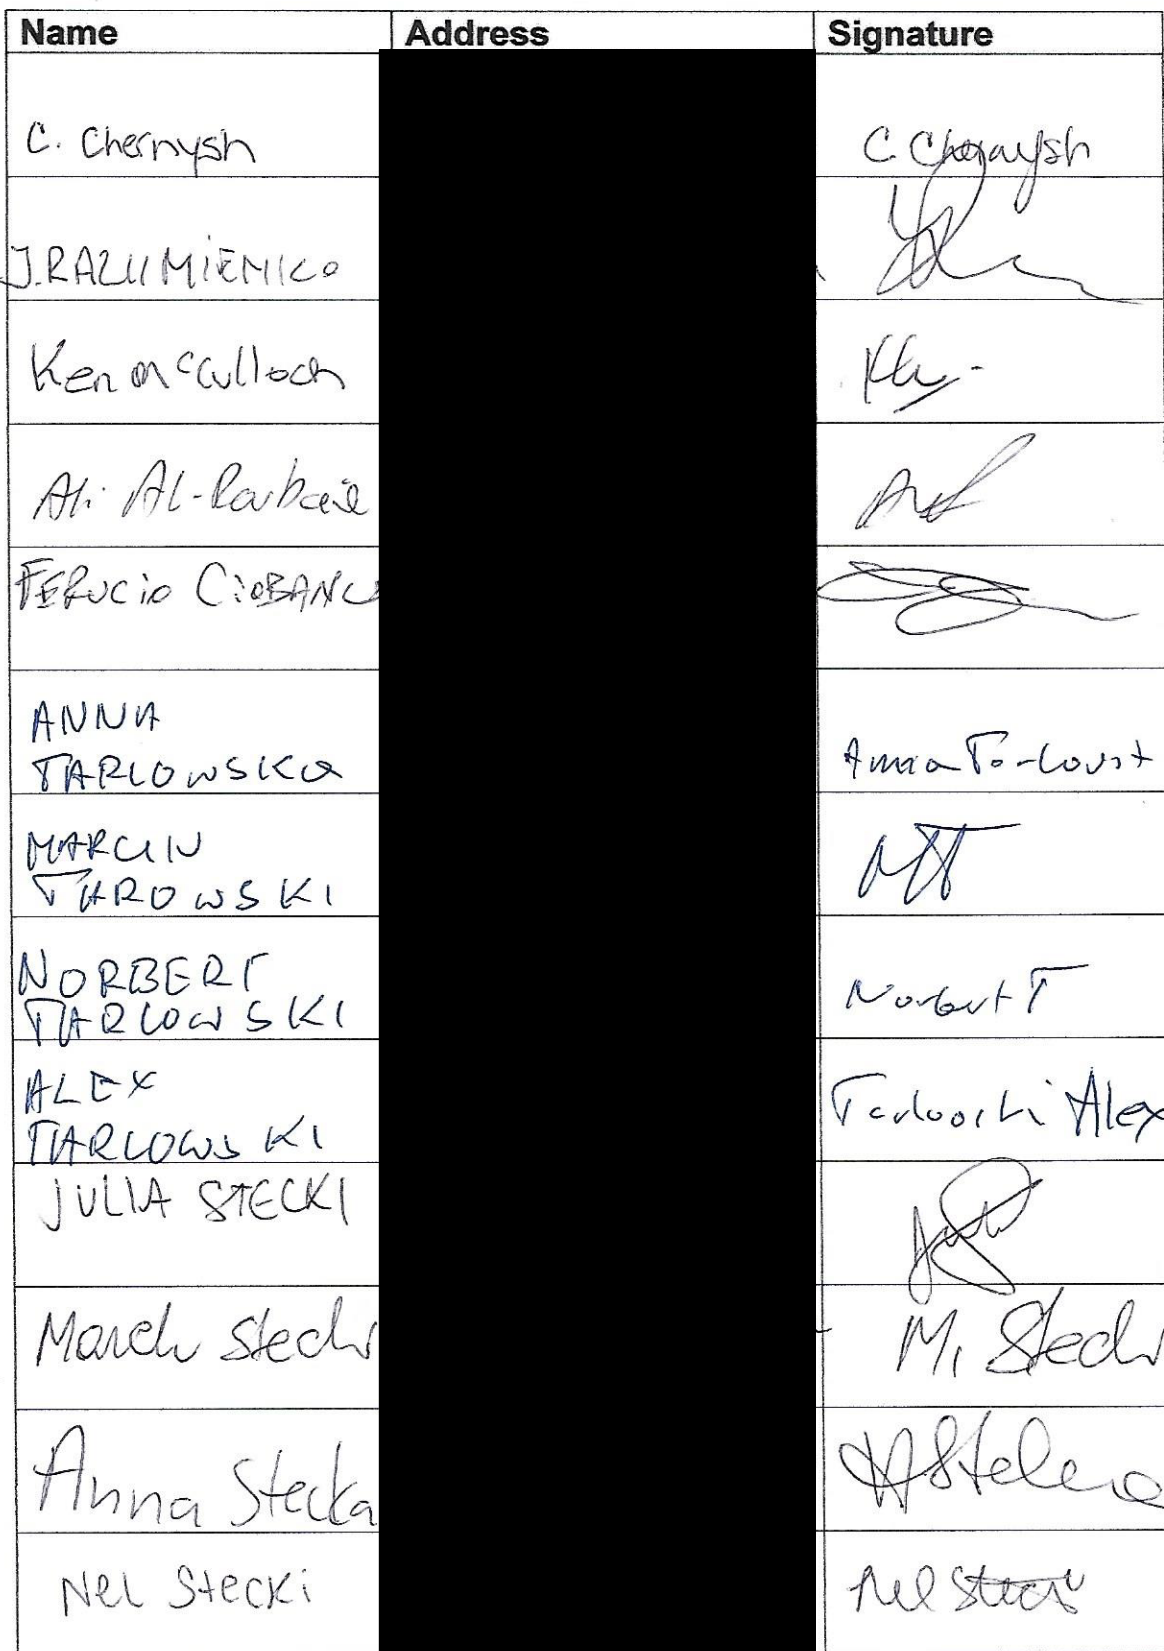 Name Address Signature
C. Chernysh C. Chernysh
J. RAZUMIENKO
Ken McCulloch
Ali Al-Rubaie
FERUCIO CIOBANU
ANNA
TARLOWSKA Anna
MARCIN
TAROWSKI MT
NORBERT
TARLOWSKI Norbert T
ALEX
TARLOWSKI Tarlowski Alex
JULIA STECKI
Marek Stecki M. Stecki
Anna Stecka A Stecka
Nel Stecki Nel Stecki